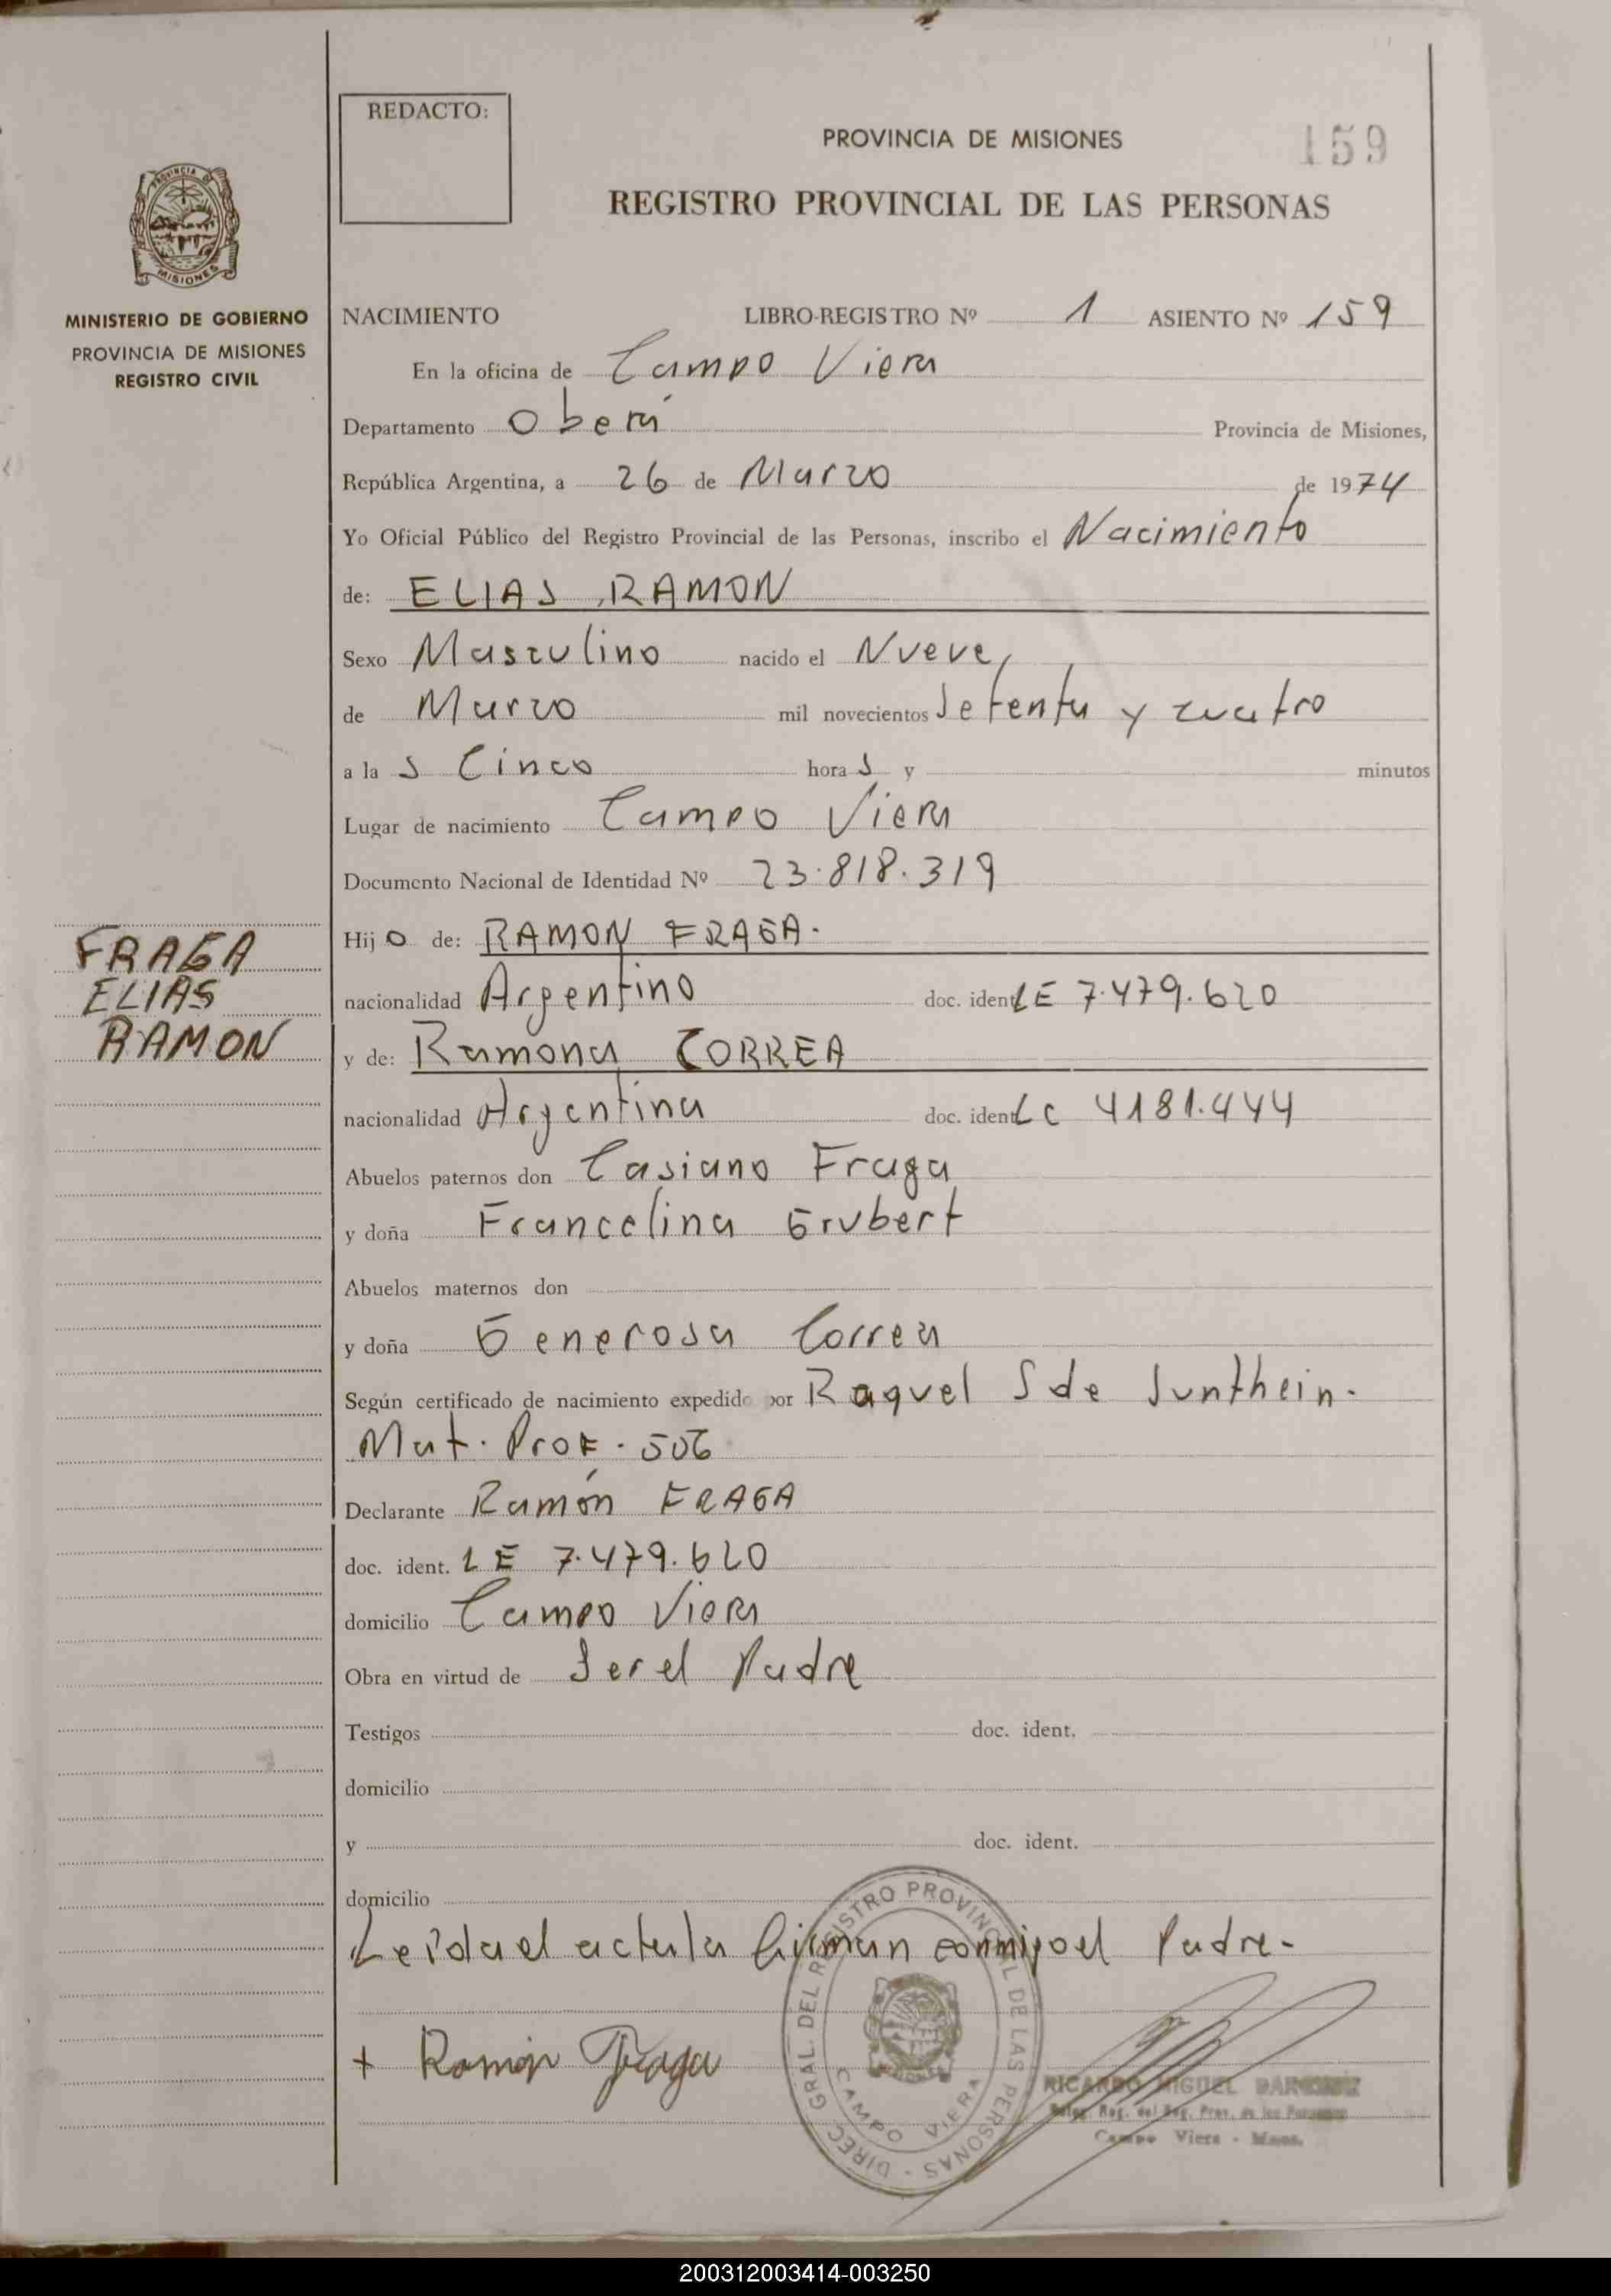 REDACTO:
PROVINCIA DE MISIONES
159
REGISTRO PROVINCIAL DE LAS PERSONAS
PROVINCIA DE
MISIONES
MINISTERIO DE GOBIERNO
PROVINCIA DE MISIONES
REGISTRO CIVIL
NACIMIENTO LIBRO-REGISTRO Nº 1 ASIENTO Nº 159
En la oficina de Campo Viera
Departamento Oberá Provincia de Misiones,
República Argentina, a 26 de Marzo de 1974
Yo Oficial Público del Registro Provincial de las Personas, inscribo el Nacimiento
de: ELIAS RAMON
Sexo Masculino nacido el Nueve
de Marzo mil novecientos Setenta y cuatro
a la s Cinco hora s y minutos
Lugar de nacimiento Campo Viera
Documento Nacional de Identidad Nº 23.818.319
Hij o de: RAMON FRAGA.
nacionalidad Argentino doc. ident LE 7.479.620
y de: Ramona CORREA
nacionalidad Argentina doc. ident LC 4181.444
Abuelos paternos don Casiano Fraga
y doña Francelina Grubert
Abuelos maternos don
y doña Generosa Correa
Según certificado de nacimiento expedido por Raquel S de Sunthein.
Mat. Prof. 506
Declarante Ramón FRAGA
doc. ident. LE 7.479.620
domicilio Campo Viera
Obra en virtud de Ser el Padre
Testigos doc. ident.
domicilio
y doc. ident.
domicilio
Leida el acta la firman conmigo el Padre-
+ Ramon Fraga
FRAGA
ELIAS
RAMON
DIREC GRAL. DEL REGISTRO PROVINCIAL DE LAS PERSONAS -
CAMPO VIERA
RICARDO MIGUEL
Reg. del Reg. Prov. de las Personas
Campo Viera - Mnes.
200312003414-003250